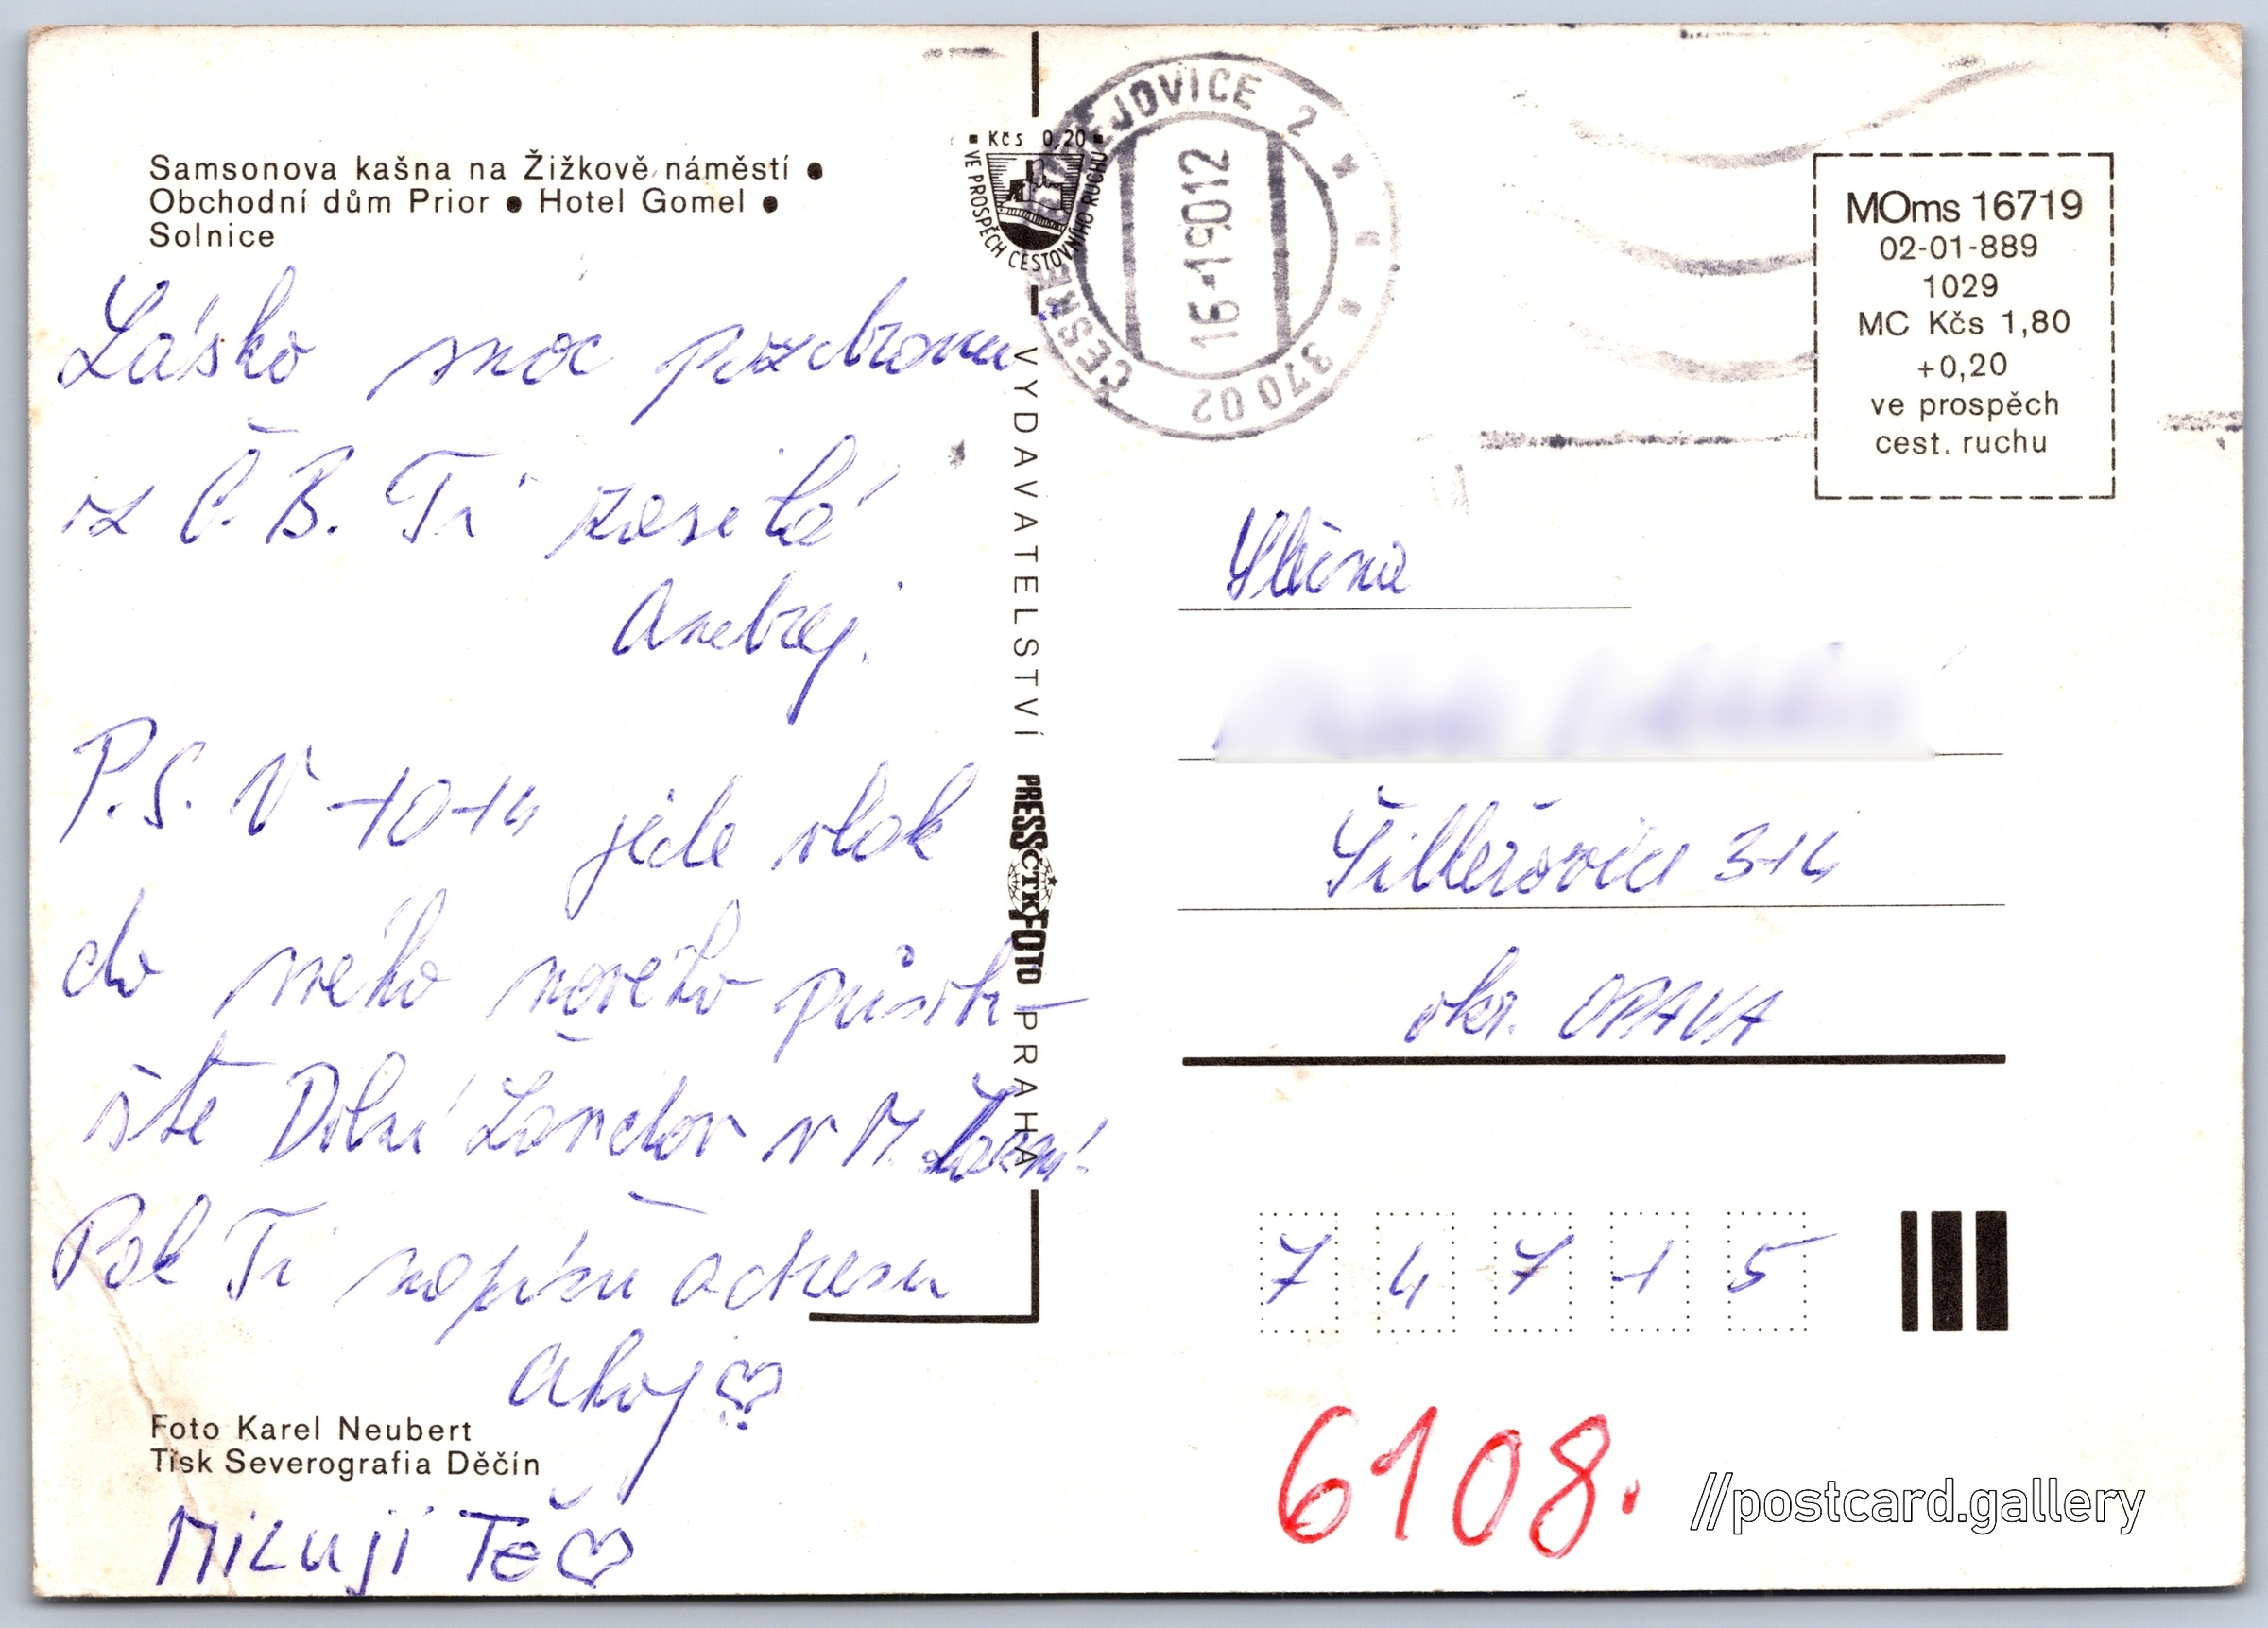 Samsonova kašna na Žižkově náměstí ●
Obchodní dům Prior ● Hotel Gomel ●
Solnice
Lásko moc pozdravu
z Č. B. Ti zasílá
Andrej.
P.S. V 10 14 jede vlak
do mého nového působi-
ště Dolní Žandov v M. Lázní.
Pak Ti napíšu adresu
ahoj ♡
Foto Karel Neubert
Tisk Severografia Děčín
MiLuji Tě ♡
Kčs 0,20
VE PROSPĚCH CESTOVNÍHO RUCHU
VYDAVATELSTVÍ PRESSFOTO PRAHA
ČTK
ČESKÉ BUDĚJOVICE 2
16-1 9012
370 02
MOms 16719
02-01-889
1029
MC Kčs 1,80
+0,20
ve prospěch
cest. ruchu
Slečna
Šilheřovice 314
okr. OPAVA
7 4 7 1 5
6108.
//postcard.gallery